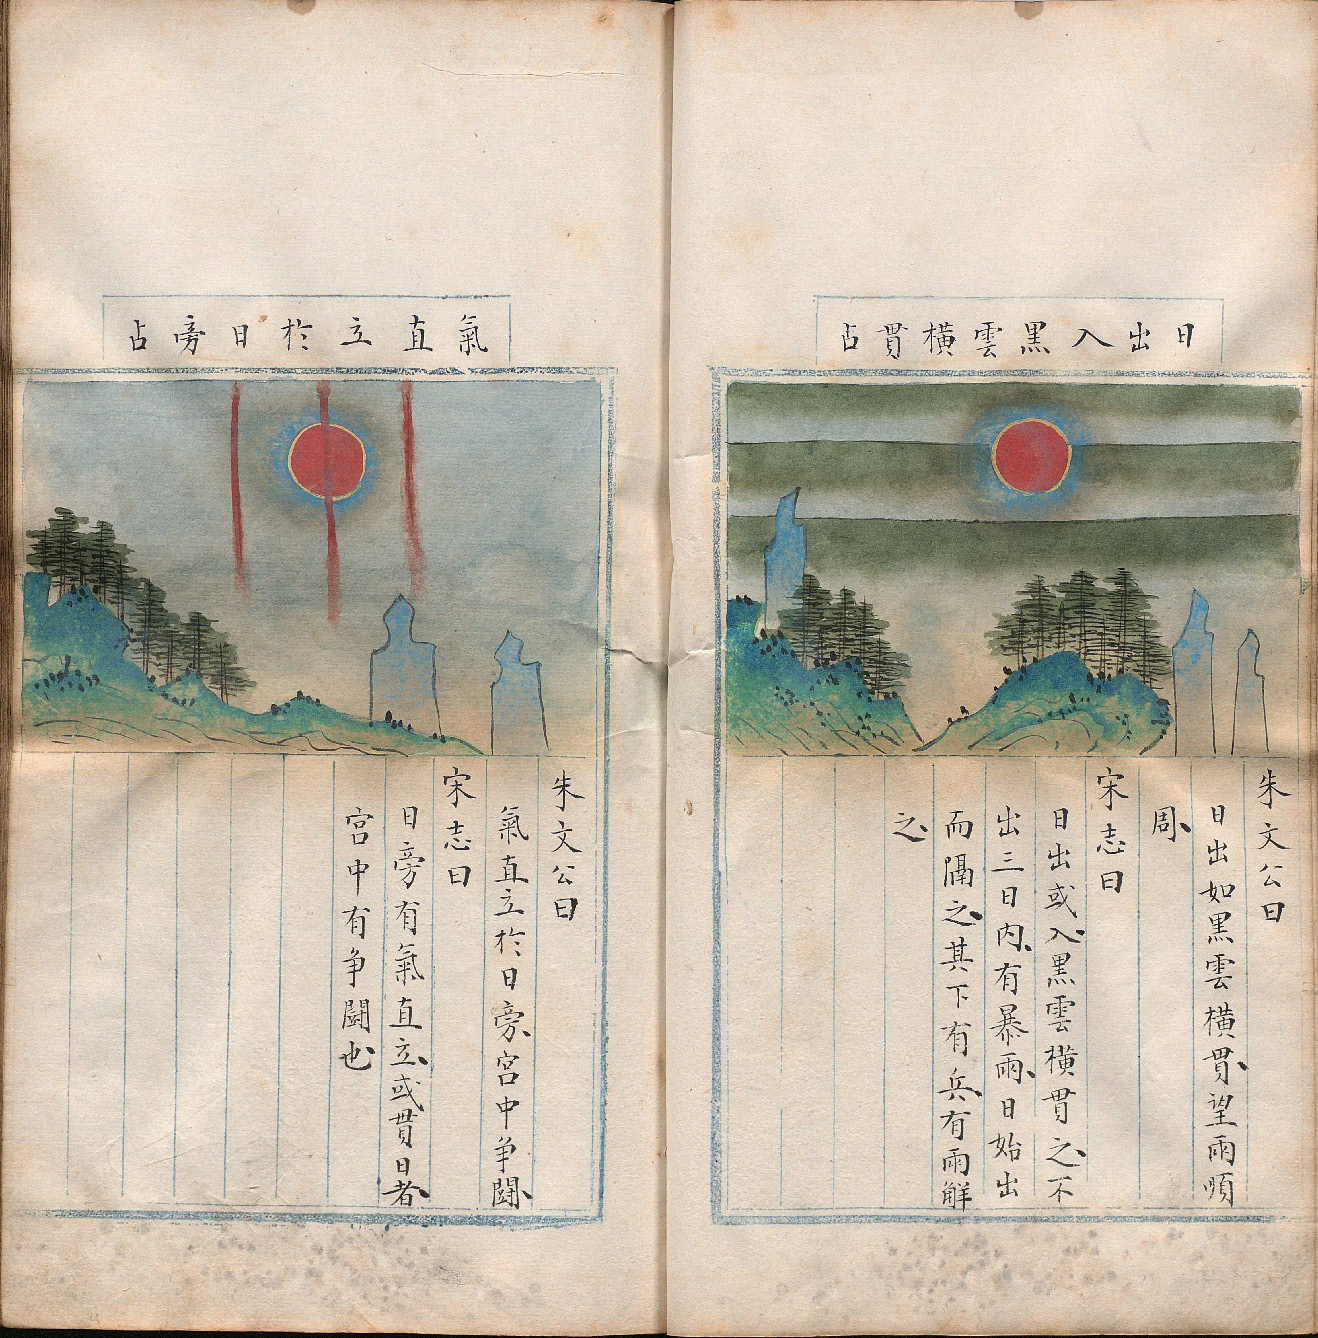 日出入黑雲橫貫占
朱文公曰
日出如黑雲橫貫、望雨順
周、
宋志曰
日出或入、黑雲橫貫之、不
出三日內、有暴雨、日始出
而隔之、其下有兵、有雨解
之、
氣直立於日旁占
朱文公曰
氣直立於日旁、宮中争鬪、
宋志曰
日旁有氣直立、或貫日者、
宮中有争鬪也、